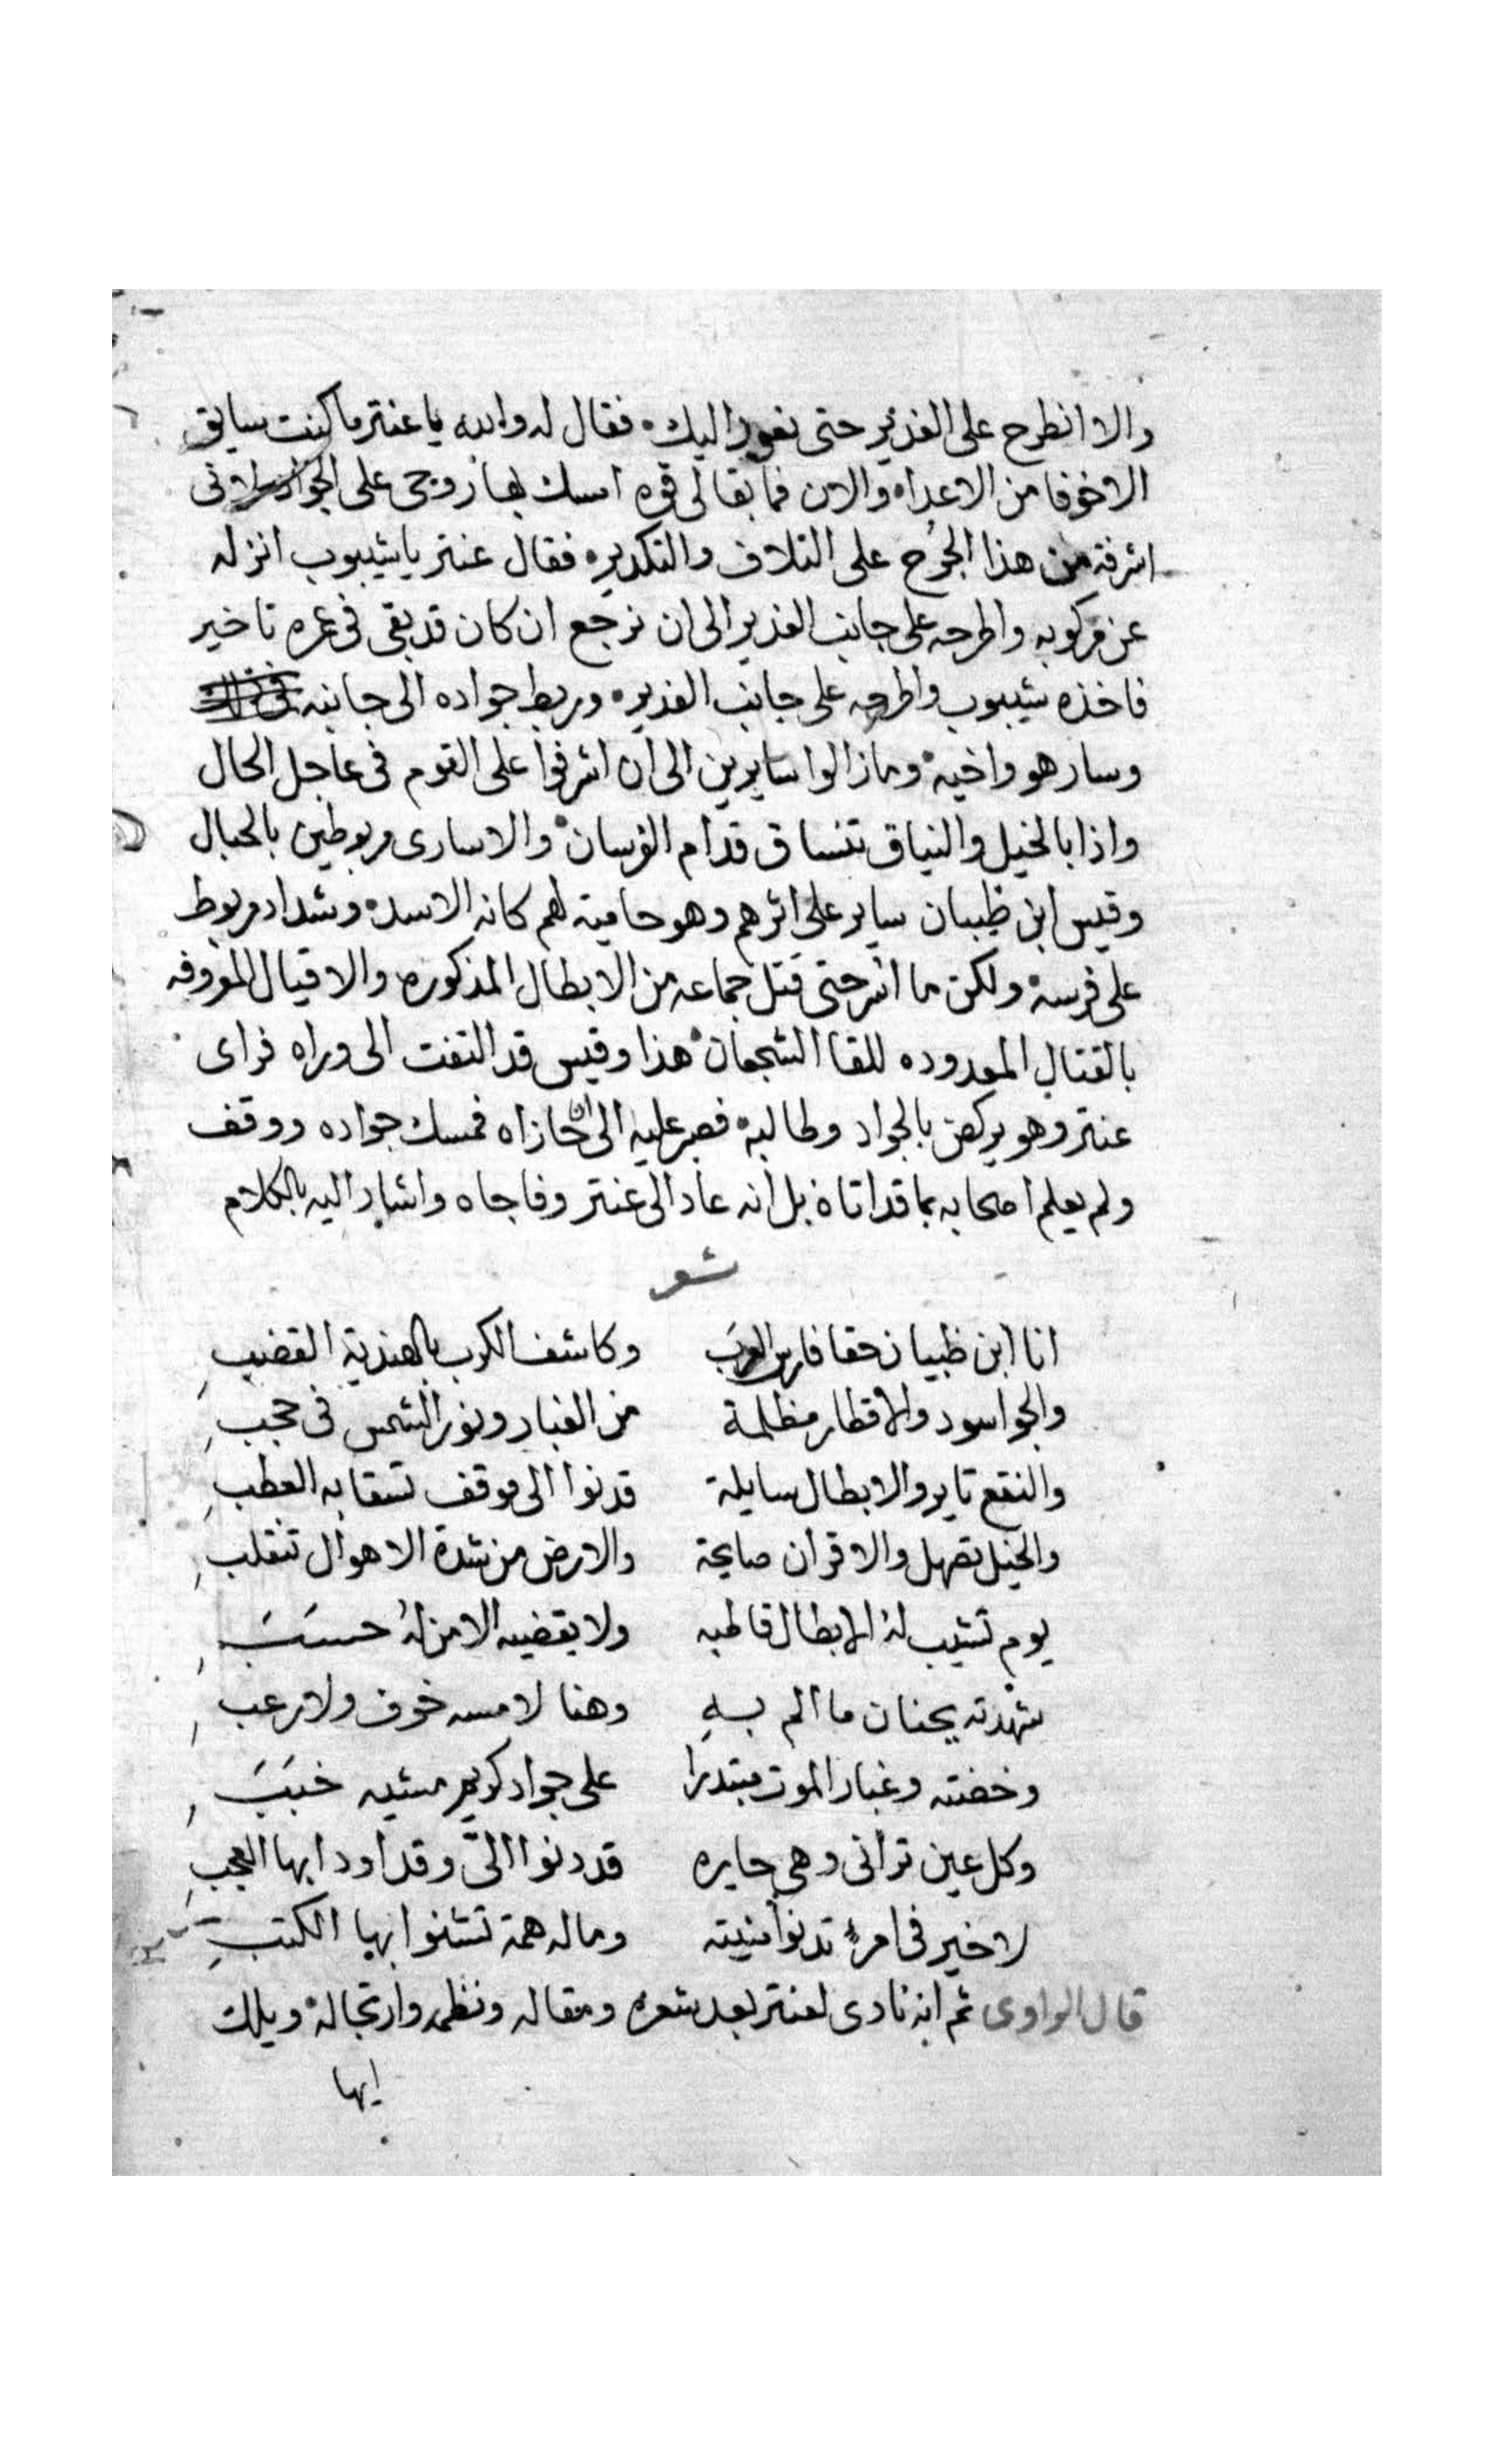 والا انطرح على الغدير حتى نعود اليك فقال له والله يا عنتر ما كنت سايق
الا خوفا من الاعداء والان فما بقا لى قوه امسك بها روحى على الجواد لانى
اشرفة من هذا الجُرح على التلاف والتكدير فقال عنتر يا شيبوب انزله
عن مركوبه واطرحه على جانب الغدير الى ان نرجع ان كان قد بقى فى عمره تاخير
فاخذه شيبوب واطرحه على جانب الغدير وربط جواده الى جانبه
وسار هو واخيه وما زالوا سايرين الى ان اشرفوا على القوم فى عاجل الحال
واذا بالخيل والنياق تنساق قدام الفرسان والاسارى مربوطين بالحبال
وقيس ابن ظبيان ساير على اثرهم وهو حامية لهم كانه الاسد وشداد مربوط
على فرسه ولكن ما اسر حتى قتل جماعه من الابطال المذكوره والاقيال المعروفه
بالقتال المعدوده للقا الشجعان هذا وقيس قد التفت الى وراه فراى
عنتر وهو يركض بالجواد وطالبه فصبر عليه الى ان حازاه فمسك جواده ووقف
ولم يعلم اصحابه بما قد اتاه بل انه عاد الى عنتر وفاجاه واشار اليه بالكلام
شعر
انا ابن ظبيان حقا فارس العرب وكاشف الكرب بالهندية القضب
والجو اسود والاقطار مظلمة من الغبار ونور الشمس فى حجب
والنقع تاير والابطال سايلة قدنوا الى موقف تسقا به العطب
والخيل تصهل والاقران صايحة والارض من شدة الاهوال تنقلب
يوم تشيب لهُ الابطال قاطبه ولا يقضيه الا من لهُ حسبَ
شهدته بجنان ما الم بهِ وهنا لامسه خوف ولا رعب
وخضته وغبار الموت مبتدرًا على جواد كريم مشيه خببَ
وكل عين ترانى وهى حايره قد دنوا الىّ وقد اودا بها العجب
لا خير فى امرءٍ تدنوا منيته وماله همة تشنوا بها الكتبِ
قال الراوى ثم انه نادى لعنتر بعد شعره ومقاله ونظمه وارتجاله ويلك
ايها